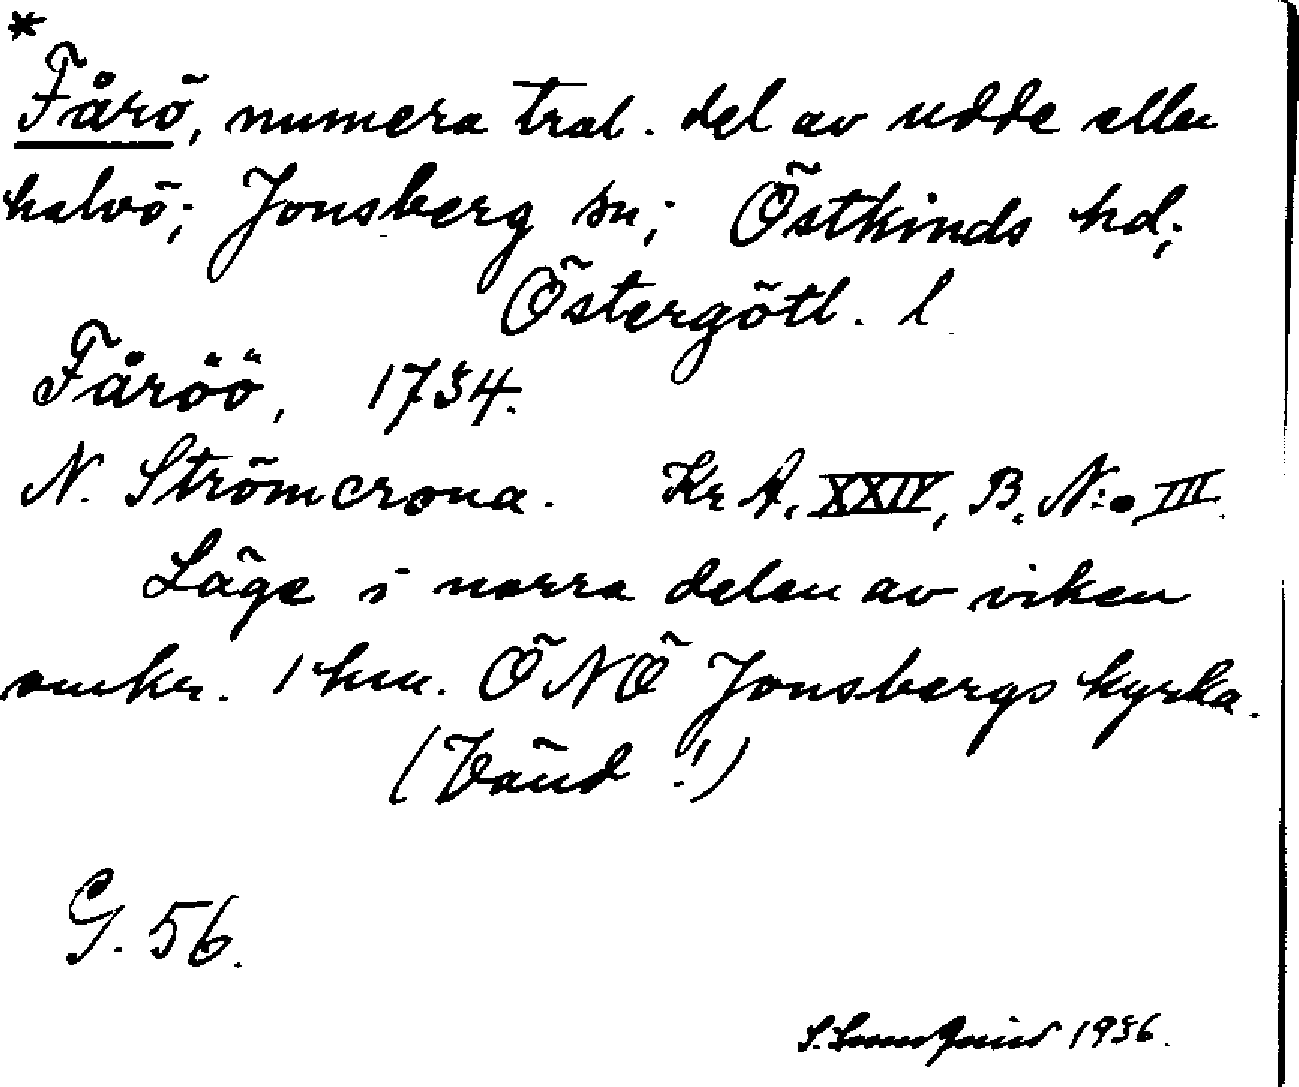 *
Fårö, numera trol. del av udde eller
halvö; Jonsberg sn; Östkinds hd;
Östergötl. l.
Fåröö, 1734.
N. Strömcrona. Kr A. XXIV, B. N:o III.
Läge i norra delen av viken
omkr. 1 km. ÖNÖ Jonsbergs kyrka.
(Vänd!)
G. 56.
S. 1936.